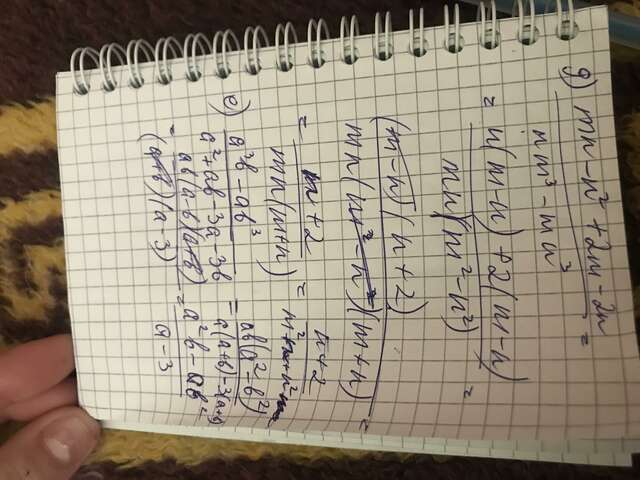 д) mn - n² + 2m - 2n / nm³ - mn³ =
= n(m-n) + 2(m-n) / mn(m² - n²) =
(m-n)(n+2) / mn(m-n)(m+n) =
= n+2 / mn(m+n) = n+2 / m²n+n²m
е) a³b - ab³ / a² + ab - 3a - 3b = ab(a² - b²) / a(a+b) - 3(a+b)
= ab(a-b)(a+b) / (a+b)(a-3) = a²b - ab² / a-3